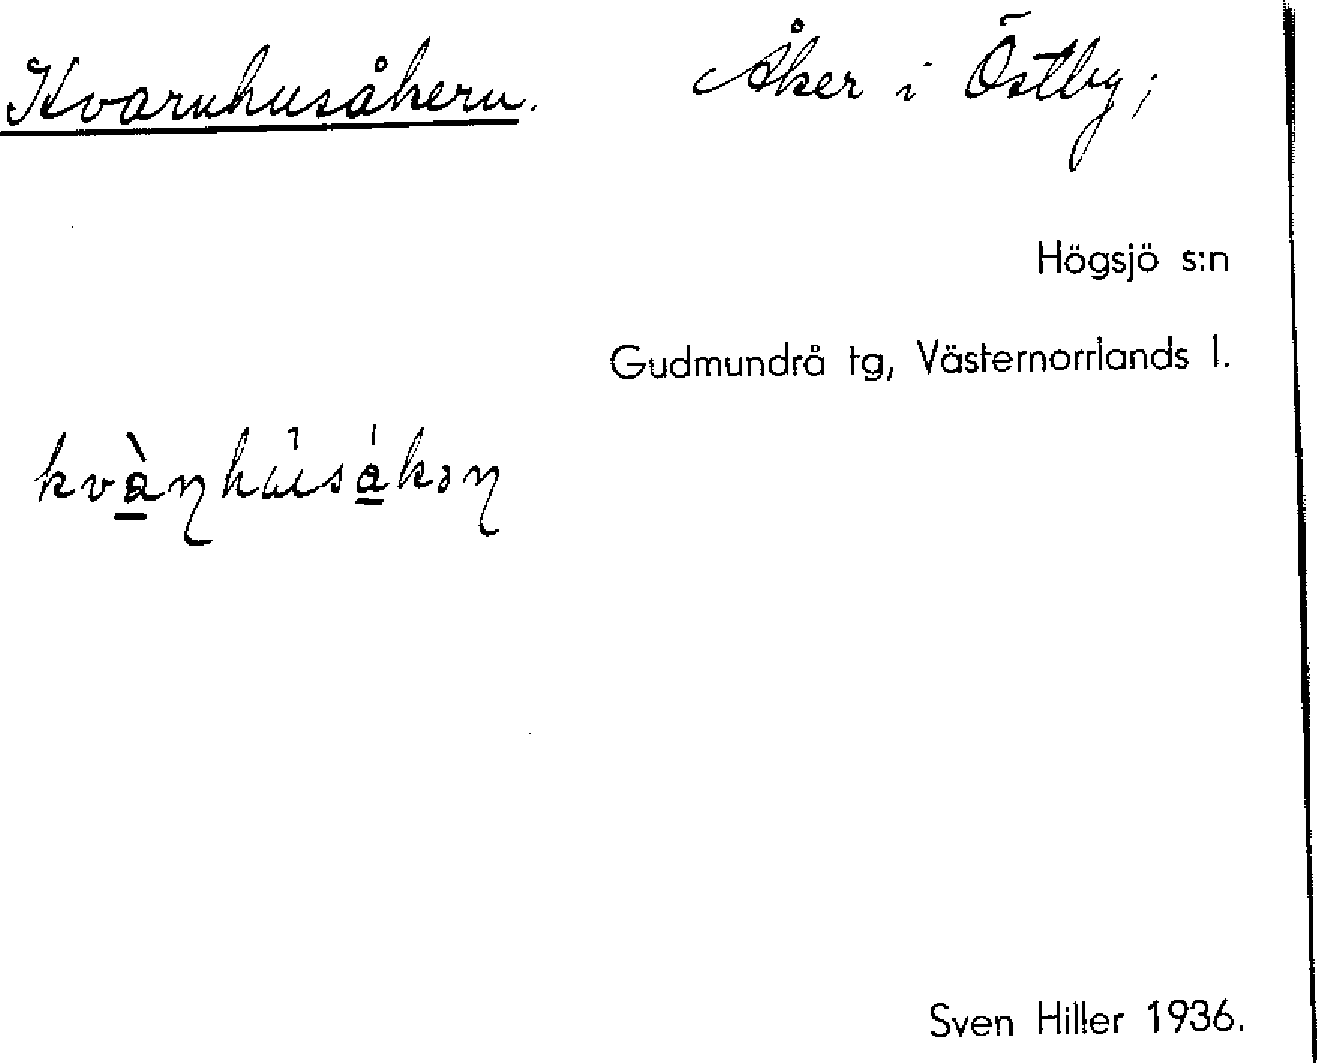 Kvarnhusåkern. Åker i Östby;
Högsjö s:n
Gudmundrå tg, Västernorrlands l.
kvàɳhúsákəɳ
Sven Hiller 1936.